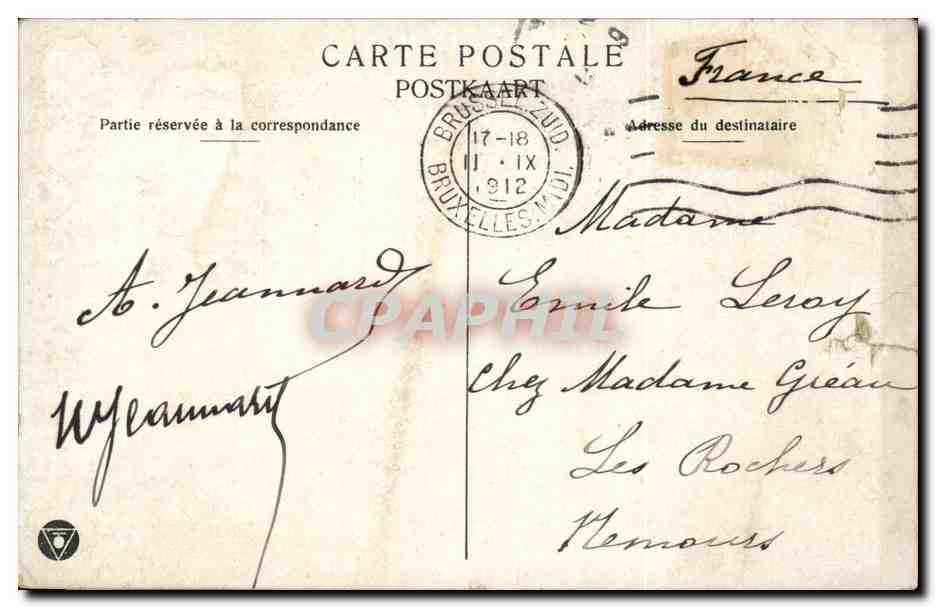 CARTE POSTALE
POSTKAART
France
Partie réservée à la correspondance
Adresse du destinataire
BRUSSEL-ZUID.
17-18
11 · IX
1912
BRUXELLES-MIDI.
Madame
Emile Leroy
chez Madame Gréau
Les Rochers
Nemours
A. Jeannard
WJeannard
CPAPHIL